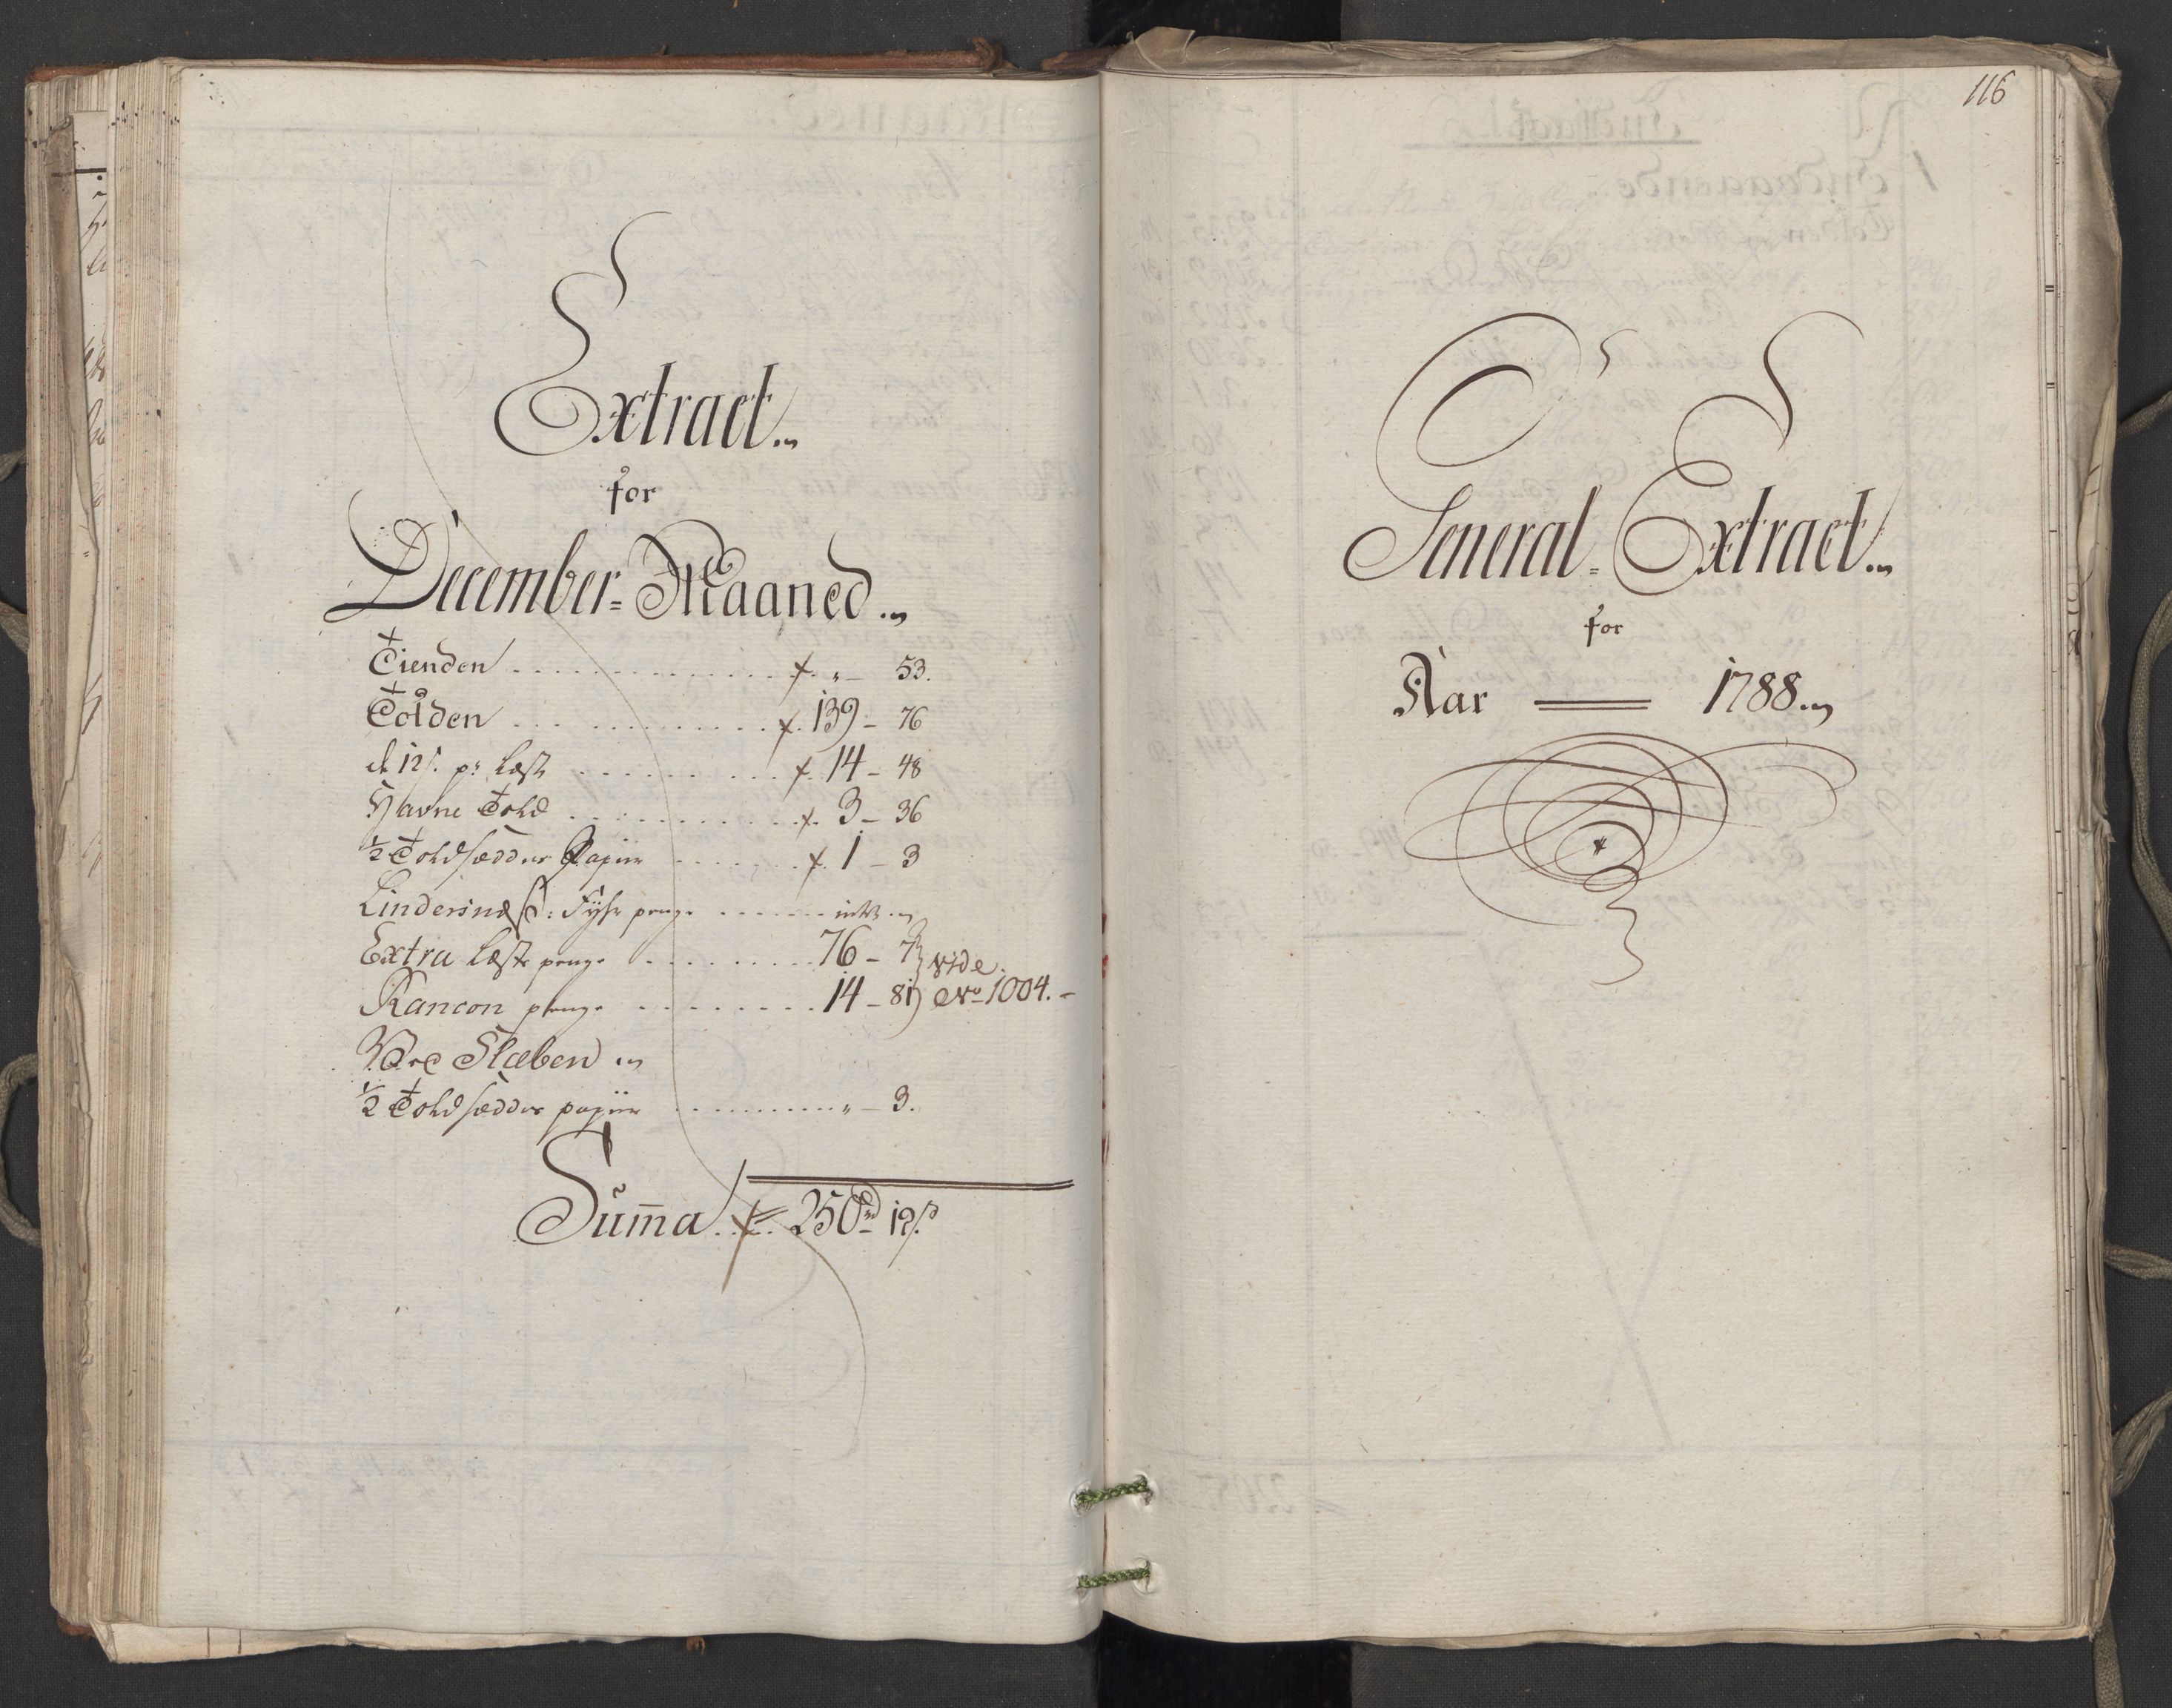 Extract
for
December = Maaned
Tienden . . . . „ — 53.
Tolden . . . . 139 — 76
de 12 s. pr Læst . . . . 14 — 48
Havne Told . . . . 3 — 36
½ Toldsædder Papiir . . . . 1 — 3
Lindersnæs: Fyhr penge . . . . intet
Extra Læste penge . . . . 76 — 7 } vide
Rancon penge . . . . 14 — 81 } No 1004. —
Slæben
½ Toldsædder papiir . . . . „ — 3.
Summa . . 250 rd 12 s.
116
General = Extract
for
Aar — 1788